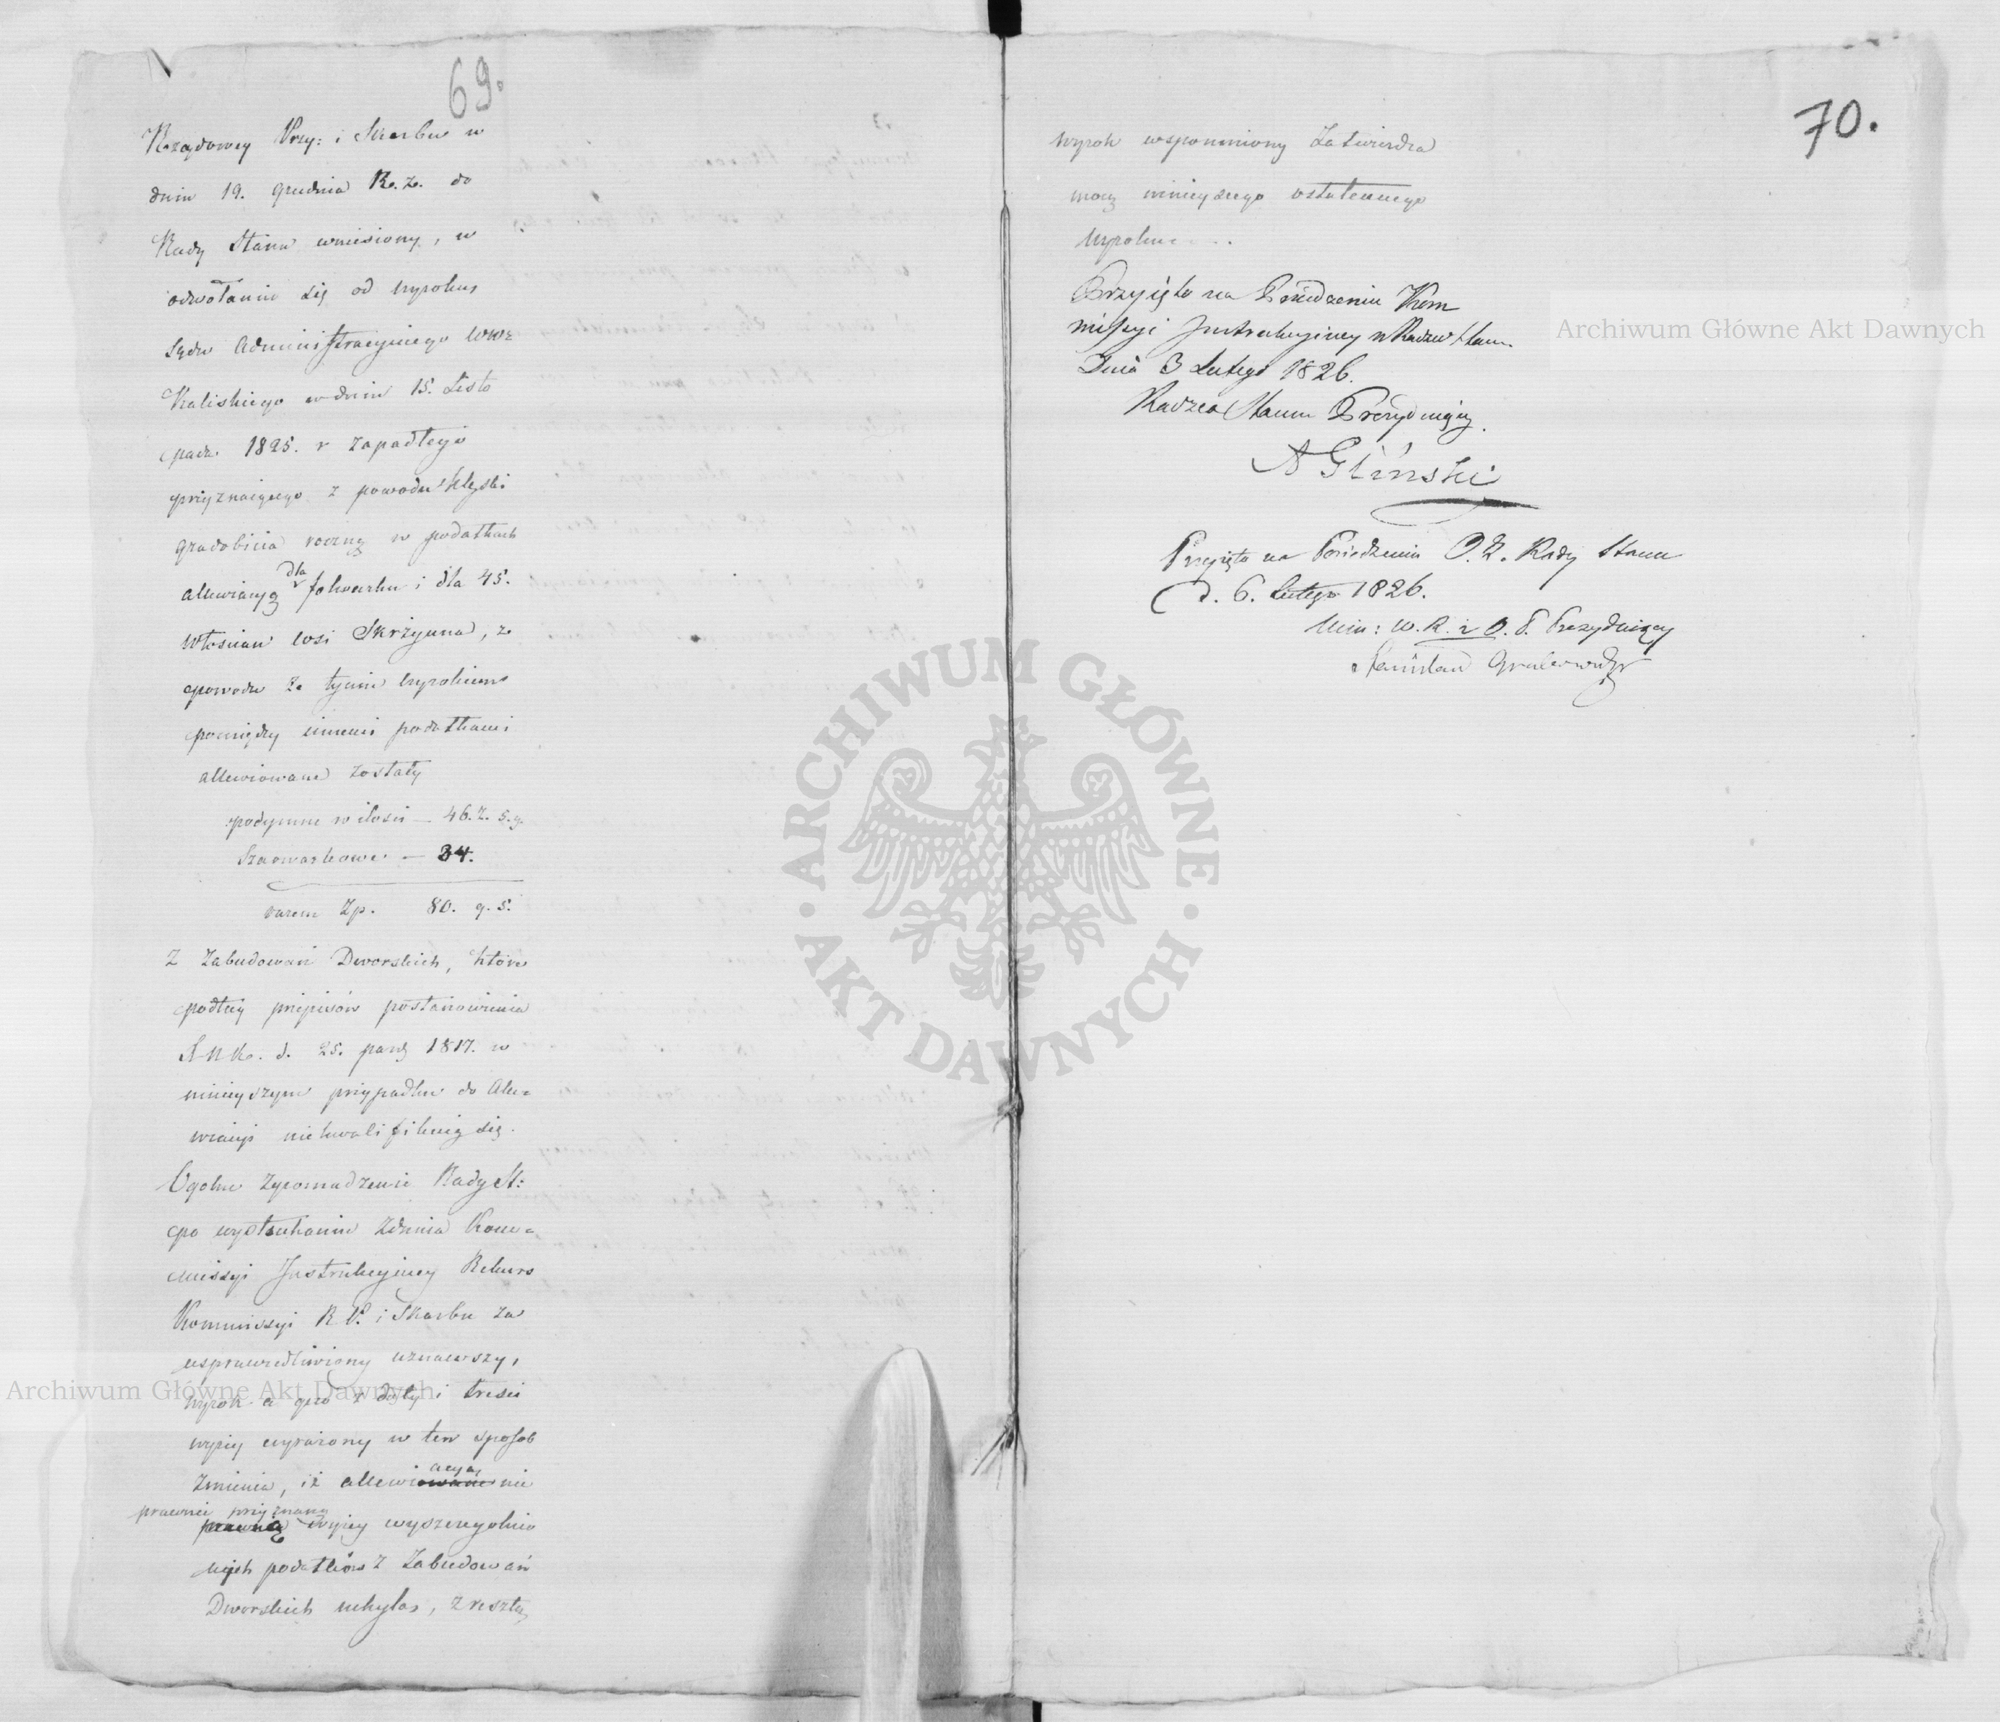 69.
Rządowey Przy: i Skarbu w
dniu 19. grudnia R. z. do
Rady Stanu wniesiony, w
odwołaniu się od wyroku
Sądu Administracyjnego Wwa
Kaliskiego w dniu 15. Listo
pada 1825. r zapadłego
przyznaiącego z powodu klęski
gradobicia roczną w podatkach
allewiacyą dla folwarku i dla 45.
Włościan wsi Skrzynna, z
powodu że tymże wyrokiem
pomiędzy innemi podatkami
allewiowane zostały
podymne w ilości — 46. z. 5. g.
Szarwarkowe — 34.
razem Zp. 80. g. 5.
Z Zabudowań Dworskich, które
podług przepisów postanowienia
d. 25. paźd 1817. w
ninieyszym przypadku do Alle-
wiacyi niekwalifikuią się.
Ogólne Zgromadzenie Rady St:
po wysłuchaniu Zdania Kom-
missyi Instrukcyiney Rekurs
Kommissyi R. P. i Skarbu za
usprawiedliwiony uznawszy,
wyrok a quo z daty i treści
wyżey wyrażony w ten sposób
zmienia, iż allewiowanie acyą nie
prawnie przyznaną
prawną wyżey wyszczególnio
nych podatków z Zabudowań
Dworskich uchyla, zresztą
70.
wyrok wspomniony Zatwierdza
mocą ninieyszego ostatecznego
Wyroku . . .
Przyięto na Posiedzeniu Kom
missyi Instrukcyiney w Radzie Stanu
Dnia 3 Lutego 1826.
Radzca Stanu Prezyduiący.
A Gliński
Przyięto na Posiedzeniu O. Z. Rady Stanu
d. 6. Lutego 1826.
Min: W. R. i O. P. Prezyduiący
Stanisław Grabowski
Archiwum Główne Akt Dawnych
Archiwum Główne Akt Dawnych
ARCHIWUM GŁÓWNE · AKT DAWNYCH ·